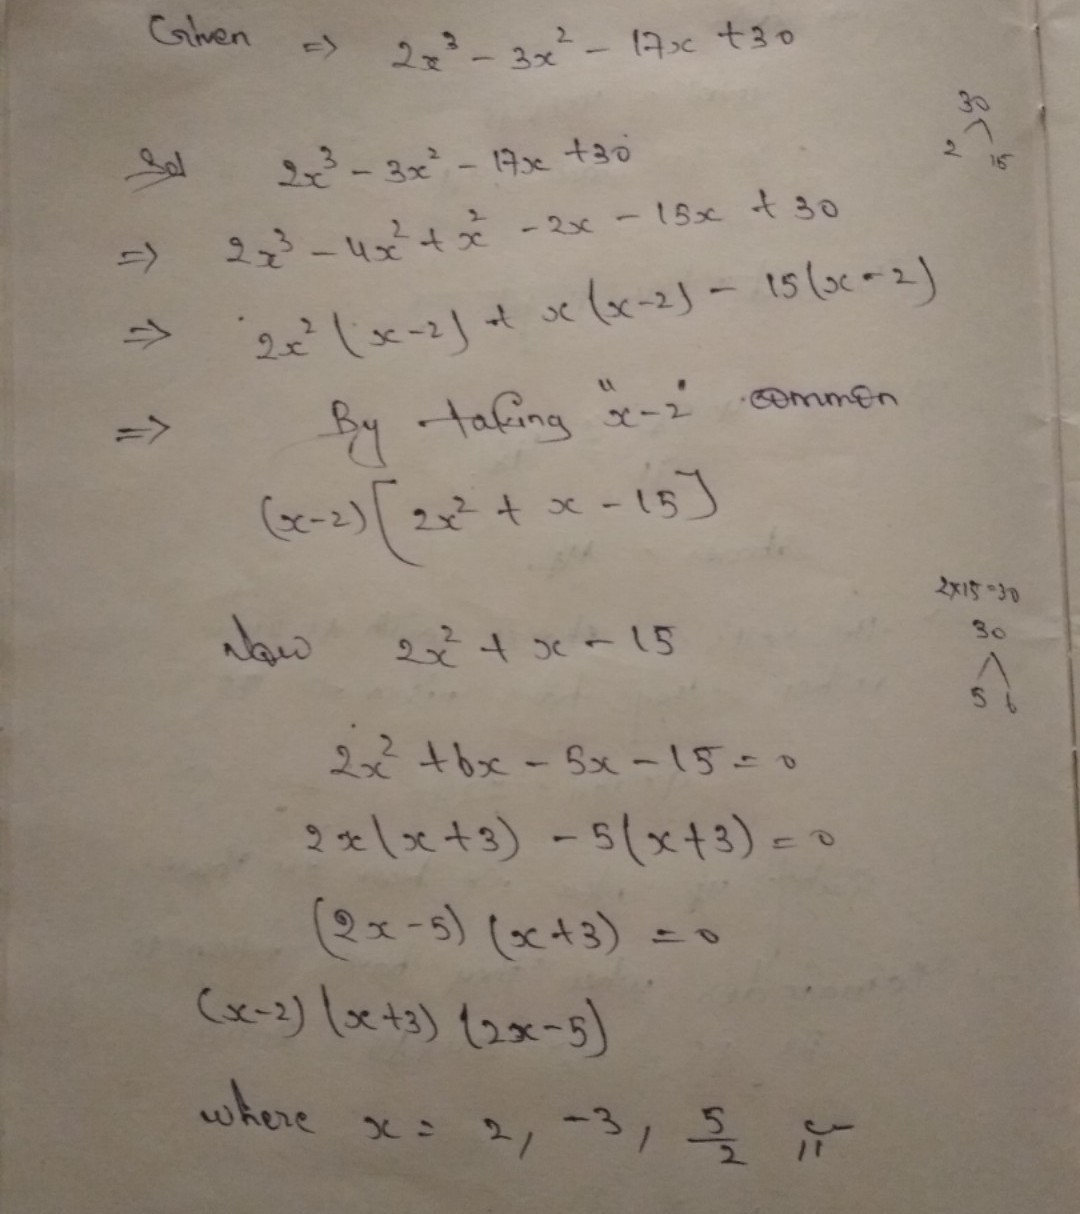 Given ⇒ 2x³ - 3x² - 17x + 30
30
2 15
Sol 2x³ - 3x² - 17x + 30
⇒ 2x³ - 4x² + x² - 2x - 15x + 30
⇒ 2x² (x-2) + x (x-2) - 15(x-2)
⇒ By taking "x-2" common
(x-2) [2x² + x - 15]
2x15=30
30
5 6
Now 2x² + x - 15
2x² + 6x - 5x - 15 = 0
2x(x+3) - 5(x+3) = 0
(2x-5) (x+3) = 0
(x-2) (x+3) (2x-5)
where x = 2, -3, 5/2